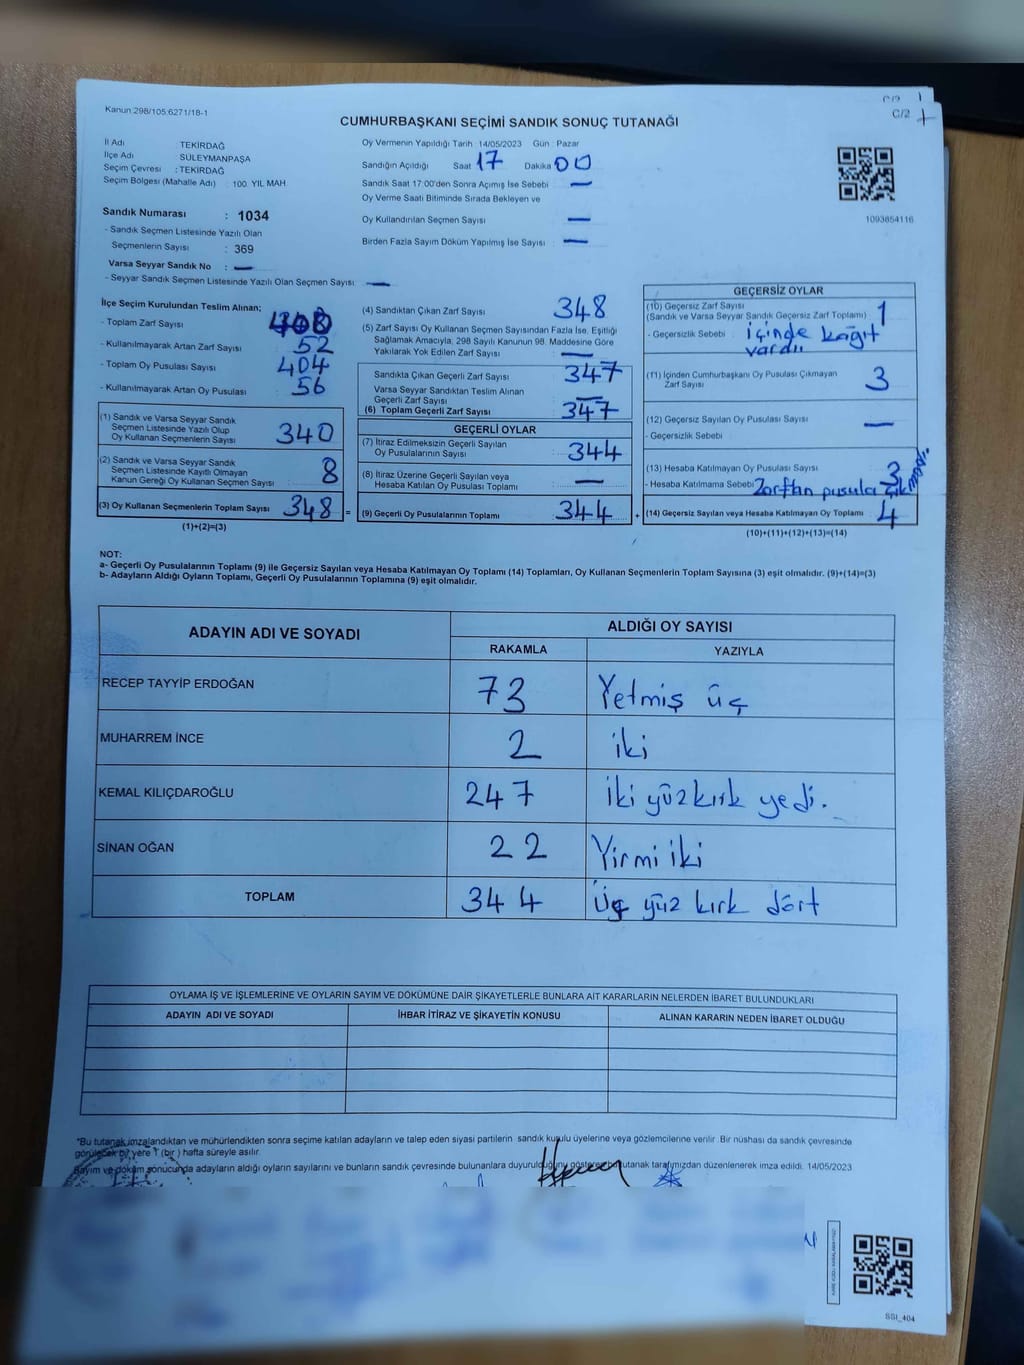 Kanun:298/105;6271/18-1
C/2
CUMHURBAŞKANI SEÇİMİ SANDIK SONUÇ TUTANAĞI
İl Adı : TEKİRDAĞ
İlçe Adı : SÜLEYMANPAŞA
Seçim Çevresi : TEKİRDAĞ
Seçim Bölgesi (Mahalle Adı) : 100. YIL MAH
Oy Vermenin Yapıldığı Tarih : 14/05/2023 Gün : Pazar
Sandığın Açıldığı Saat 17 Dakika 00
Sandık Saat 17:00'den Sonra Açılmış İse Sebebi : —
Oy Verme Saati Bitiminde Sırada Bekleyen ve
Oy Kullandırılan Seçmen Sayısı : —
Birden Fazla Sayım Döküm Yapılmış İse Sayısı : —
1093854116
Sandık Numarası : 1034
- Sandık Seçmen Listesinde Yazılı Olan
Seçmenlerin Sayısı : 369
Varsa Seyyar Sandık No : —
- Seyyar Sandık Seçmen Listesinde Yazılı Olan Seçmen Sayısı : —
İlçe Seçim Kurulundan Teslim Alınan;
- Toplam Zarf Sayısı :
- Kullanılmayarak Artan Zarf Sayısı : 52
- Toplam Oy Pusulası Sayısı : 404
- Kullanılmayarak Artan Oy Pusulası : 56
(1) Sandık ve Varsa Seyyar Sandık
Seçmen Listesinde Yazılı Olup
Oy Kullanan Seçmenlerin Sayısı : 340
(2) Sandık ve Varsa Seyyar Sandık
Seçmen Listesinde Kayıtlı Olmayan
Kanun Gereği Oy Kullanan Seçmen Sayısı : 8
(3) Oy Kullanan Seçmenlerin Toplam Sayısı : 348
(1)+(2)=(3)
(4) Sandıktan Çıkan Zarf Sayısı : 348
(5) Zarf Sayısı Oy Kullanan Seçmen Sayısından Fazla İse, Eşitliği
Sağlamak Amacıyla, 298 Sayılı Kanunun 98. Maddesine Göre
Yakılarak Yok Edilen Zarf Sayısı : —
Sandıkta Çıkan Geçerli Zarf Sayısı : 347
Varsa Seyyar Sandıktan Teslim Alınan
Geçerli Zarf Sayısı : —
(6) Toplam Geçerli Zarf Sayısı : 347
GEÇERLİ OYLAR
(7) İtiraz Edilmeksizin Geçerli Sayılan
Oy Pusulalarının Sayısı : 344
(8) İtiraz Üzerine Geçerli Sayılan veya
Hesaba Katılan Oy Pusulası Toplamı : —
= (9) Geçerli Oy Pusulalarının Toplamı : 344
GEÇERSİZ OYLAR
(10) Geçersiz Zarf Sayısı
(Sandık ve Varsa Seyyar Sandık Geçersiz Zarf Toplamı) : 1
- Geçersizlik Sebebi : içinde kağıt
vardı
(11) İçinden Cumhurbaşkanı Oy Pusulası Çıkmayan
Zarf Sayısı : 3
(12) Geçersiz Sayılan Oy Pusulası Sayısı : —
- Geçersizlik Sebebi :
(13) Hesaba Katılmayan Oy Pusulası Sayısı : 3
- Hesaba Katılmama Sebebi : Zarftan pusula
+ (14) Geçersiz Sayılan veya Hesaba Katılmayan Oy Toplamı : 4
(10)+(11)+(12)+(13)=(14)
NOT:
a- Geçerli Oy Pusulalarının Toplamı (9) ile Geçersiz Sayılan veya Hesaba Katılmayan Oy Toplamı (14) Toplamları, Oy Kullanan Seçmenlerin Toplam Sayısına (3) eşit olmalıdır. (9)+(14)=(3)
b- Adayların Aldığı Oyların Toplamı, Geçerli Oy Pusulalarının Toplamına (9) eşit olmalıdır.
ADAYIN ADI VE SOYADI ALDIĞI OY SAYISI
RAKAMLA YAZIYLA
RECEP TAYYİP ERDOĞAN 73 Yetmiş üç
MUHARREM İNCE 2 iki
KEMAL KILIÇDAROĞLU 247 iki yüzkırk yedi.
SİNAN OĞAN 22 Yirmi iki
TOPLAM 344 Üç yüz kırk dört
OYLAMA İŞ VE İŞLEMLERİNE VE OYLARIN SAYIM VE DÖKÜMÜNE DAİR ŞİKAYETLERLE BUNLARA AİT KARARLARIN NELERDEN İBARET BULUNDUKLARI
ADAYIN ADI VE SOYADI İHBAR İTİRAZ VE ŞİKAYETİN KONUSU ALINAN KARARIN NEDEN İBARET OLDUĞU
*Bu tutanak imzalandıktan ve mühürlendikten sonra seçime katılan adayların ve talep eden siyasi partilerin sandık kurulu üyelerine veya gözlemcilerine verilir. Bir nüshası da sandık çevresinde
görülecek bir yere 1 (bir) hafta süreyle asılır.
Sayım ve döküm sonucunda adayların aldığı oyların sayılarını ve bunların sandık çevresinde bulunanlara duyurulduğunu gösteren bu tutanak tarafımızdan düzenlenerek imza edildi. 14/05/2023
SSI_404